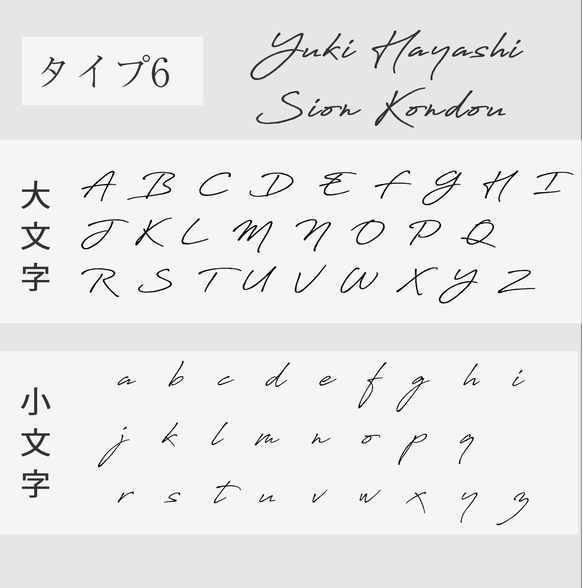 タイプ6
Yuki Hayashi
Sion Kondou
大文字
A B C D E F G H I
J K L M N O P Q
R S T U V W X Y Z
小文字
a b c d e f g h i
j k l m n o p q
r s t u v w x y z